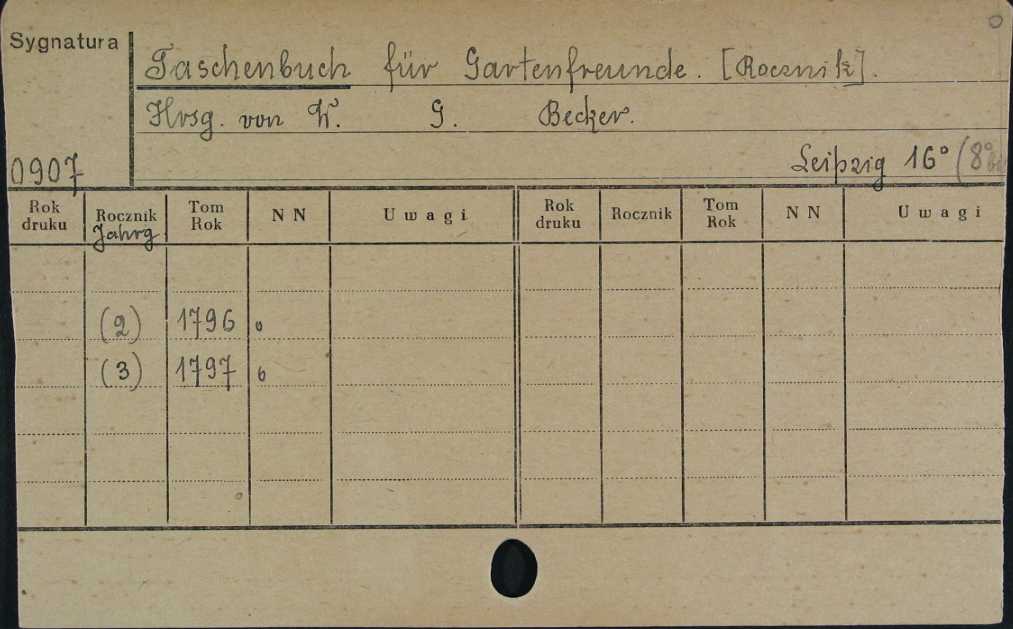 Sygnatura
Taschenbuch für Gartenfreunde. [Rocznik].
Hrsg. von W. G. Becker.
Leipzig 16° (8°
0907
Rok druku Rocznik Jahrg. Tom Rok NN Uwagi Rok druku Rocznik Tom Rok NN Uwagi
(2) 1796
(3) 1797